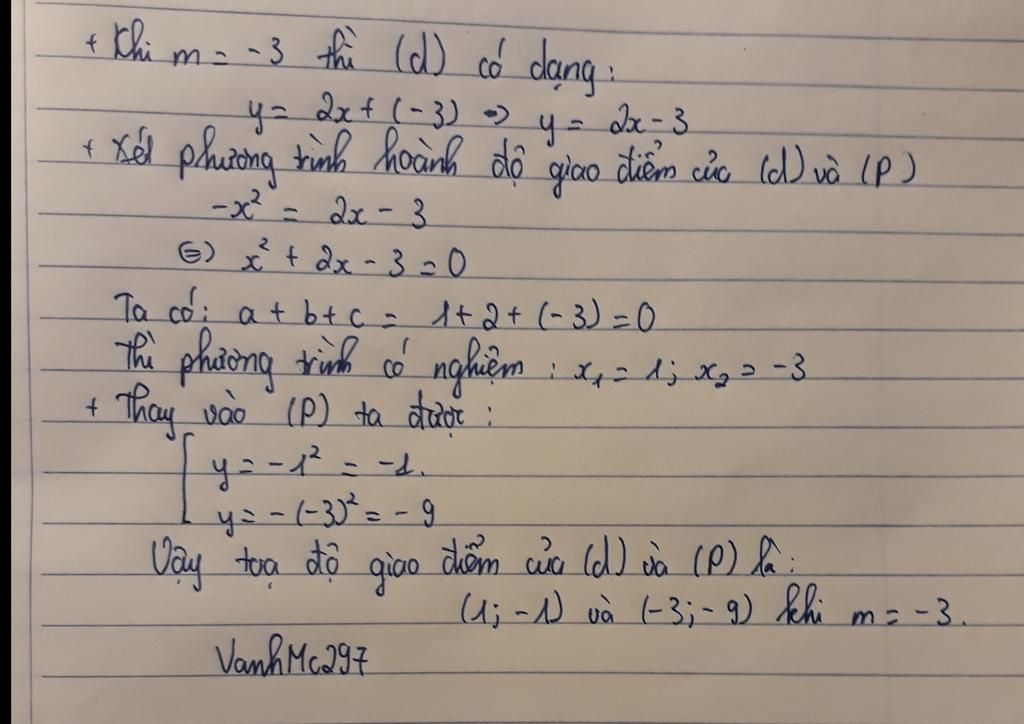 + Khi m = -3 thì (d) có dạng:
y = 2x + (-3) => y = 2x - 3
+ Xét phương trình hoành độ giao điểm của (d) và (P)
-x² = 2x - 3
(=) x² + 2x - 3 = 0
Ta có: a + b + c = 1 + 2 + (-3) = 0
Thì phương trình có nghiệm: x₁ = 1; x₂ = -3
+ Thay vào (P) ta được:
[ y = -1² = -1.
y = -(-3)² = -9
Vậy toạ độ giao điểm của (d) và (P) là:
(1; -1) và (-3; -9) khi m = -3.
VanhMc297